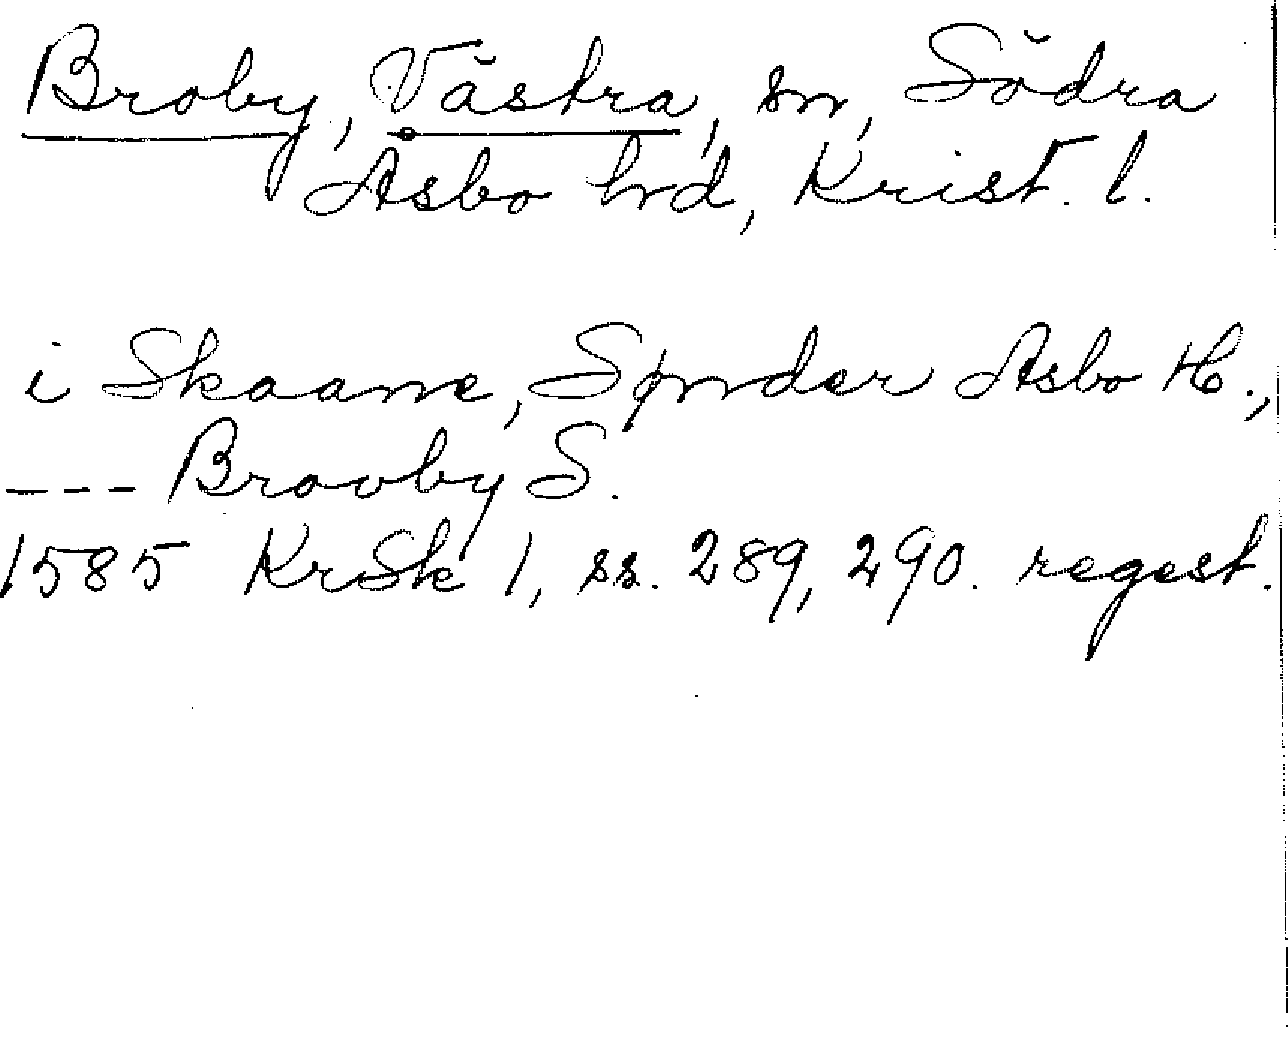 Broby, Västra, sn, Södra
Åsbo hrd, Krist. l.
i Skaane, Sønder Asbo H.,
--- Brovby S.
1585 KrSk 1, ss. 289, 290. regest.